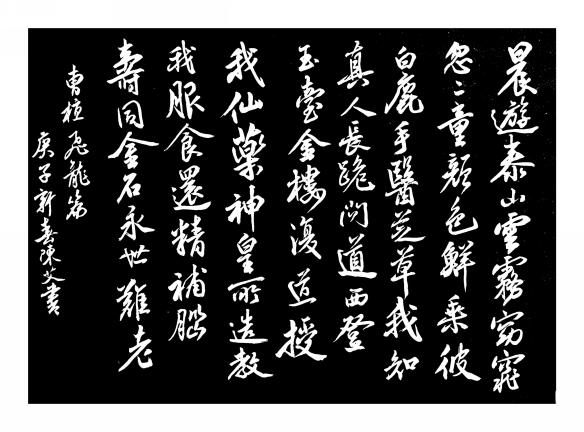 晨遊泰山雲霧窈窕
忽二童顏色鮮乘彼
白鹿手醫芝草我知
真人長跪問道西登
玉臺金樓復道授
我仙藥神皇所造教
我服食還精補腦
壽同金石永世難老
曹植飛龍篇
庚子新春陳艾書